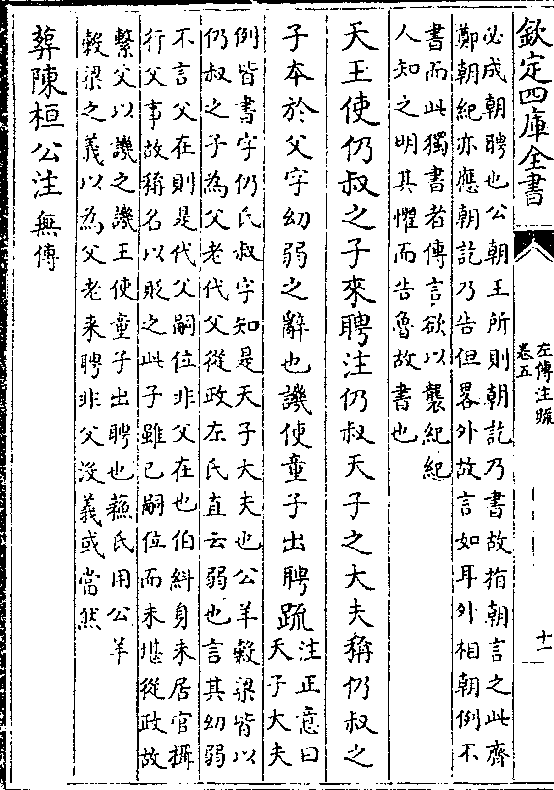 欽定四庫全書
左傳注疏
卷五
十一
必成朝聘也公朝王所則朝訖乃書故指朝言之此齊
鄭朝紀亦應朝訖乃告但畧外故言如耳外相朝例不
書而此獨書者傳言欲以襲紀紀
人知之明其懼而告魯故書也
天王使仍叔之子來聘注仍叔天子之大夫稱仍叔之
子本於父字幼弱之辭也譏使童子出聘疏
注正意曰
天子大夫
例皆書字仍氏叔字知是天子大夫也公羊榖梁皆以
仍叔之子為父老代父從政左氏直云弱也言其幼弱
不言父在則是代父嗣位非父在也伯糾身未居官攝
行父事故稱名以貶之此子雖已嗣位而未堪從政故
繫父以譏之譏王使童子出聘也蘇氏用公羊
榖梁之義以為父老来聘非父沒義或當然
葬陳桓公注無傳